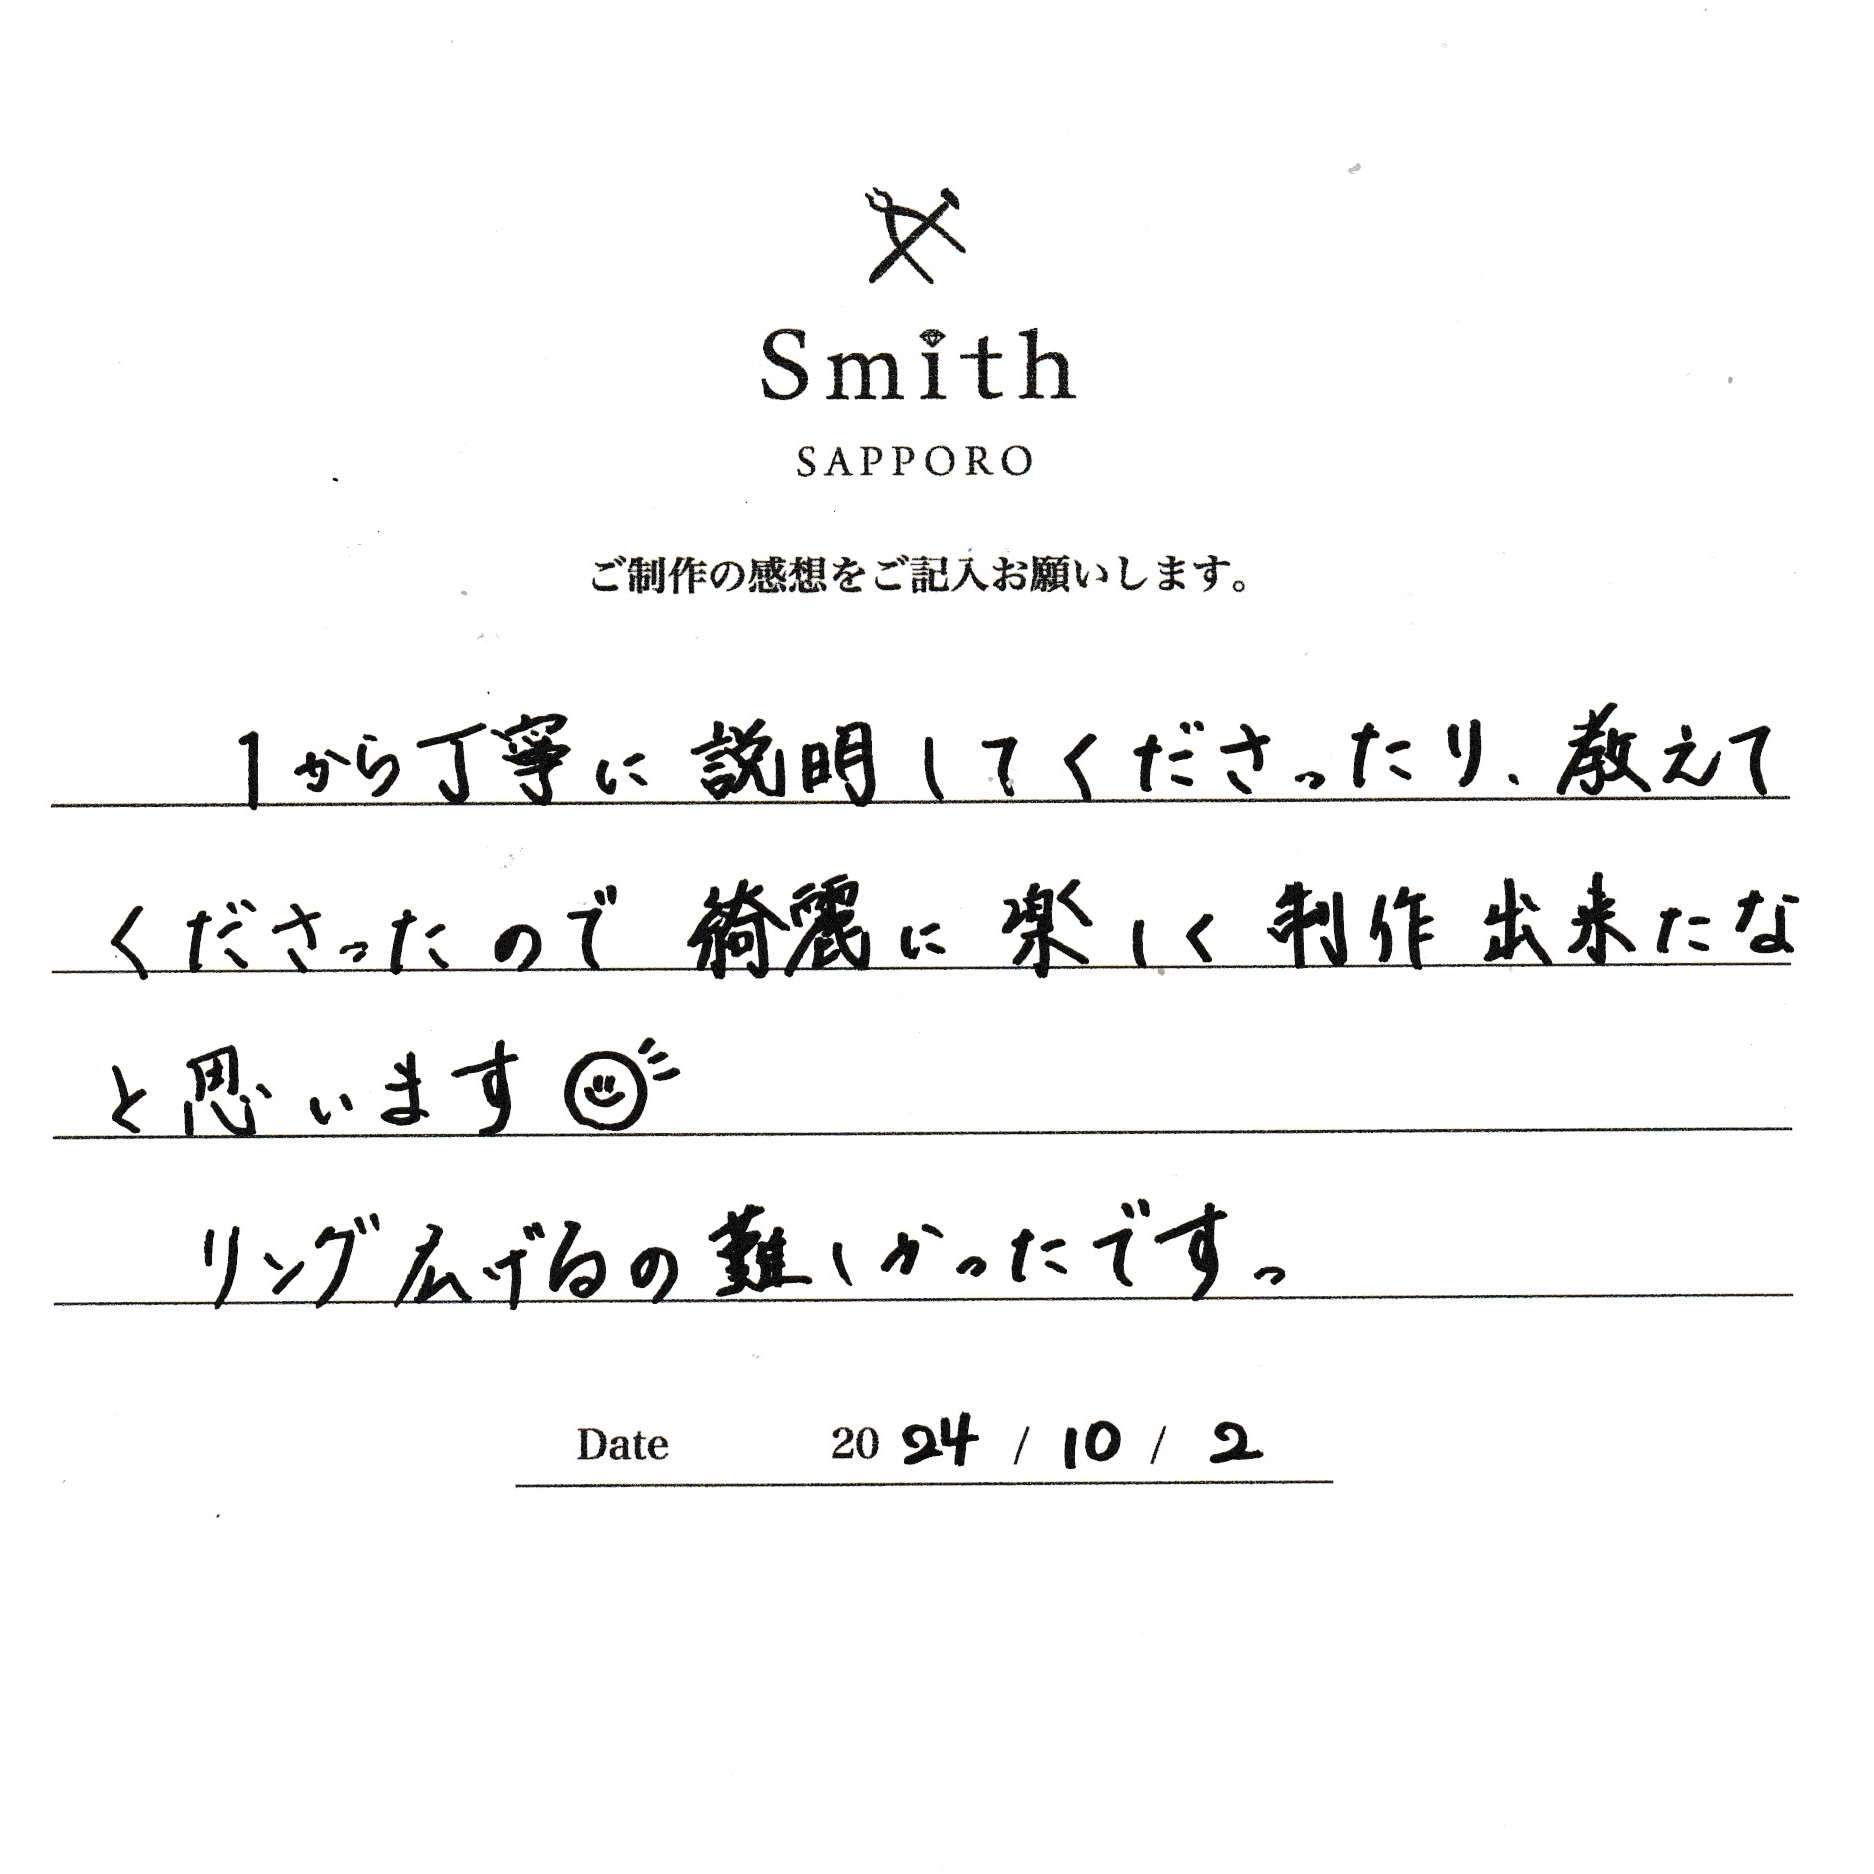 Smith
SAPPORO
ご制作の感想をご記入お願いします。
1から丁寧に説明してくださったり、教えて
くださったので綺麗に楽しく制作出来たな
と思います
リング広げるの難しかったですっ
Date 2024 / 10 / 2